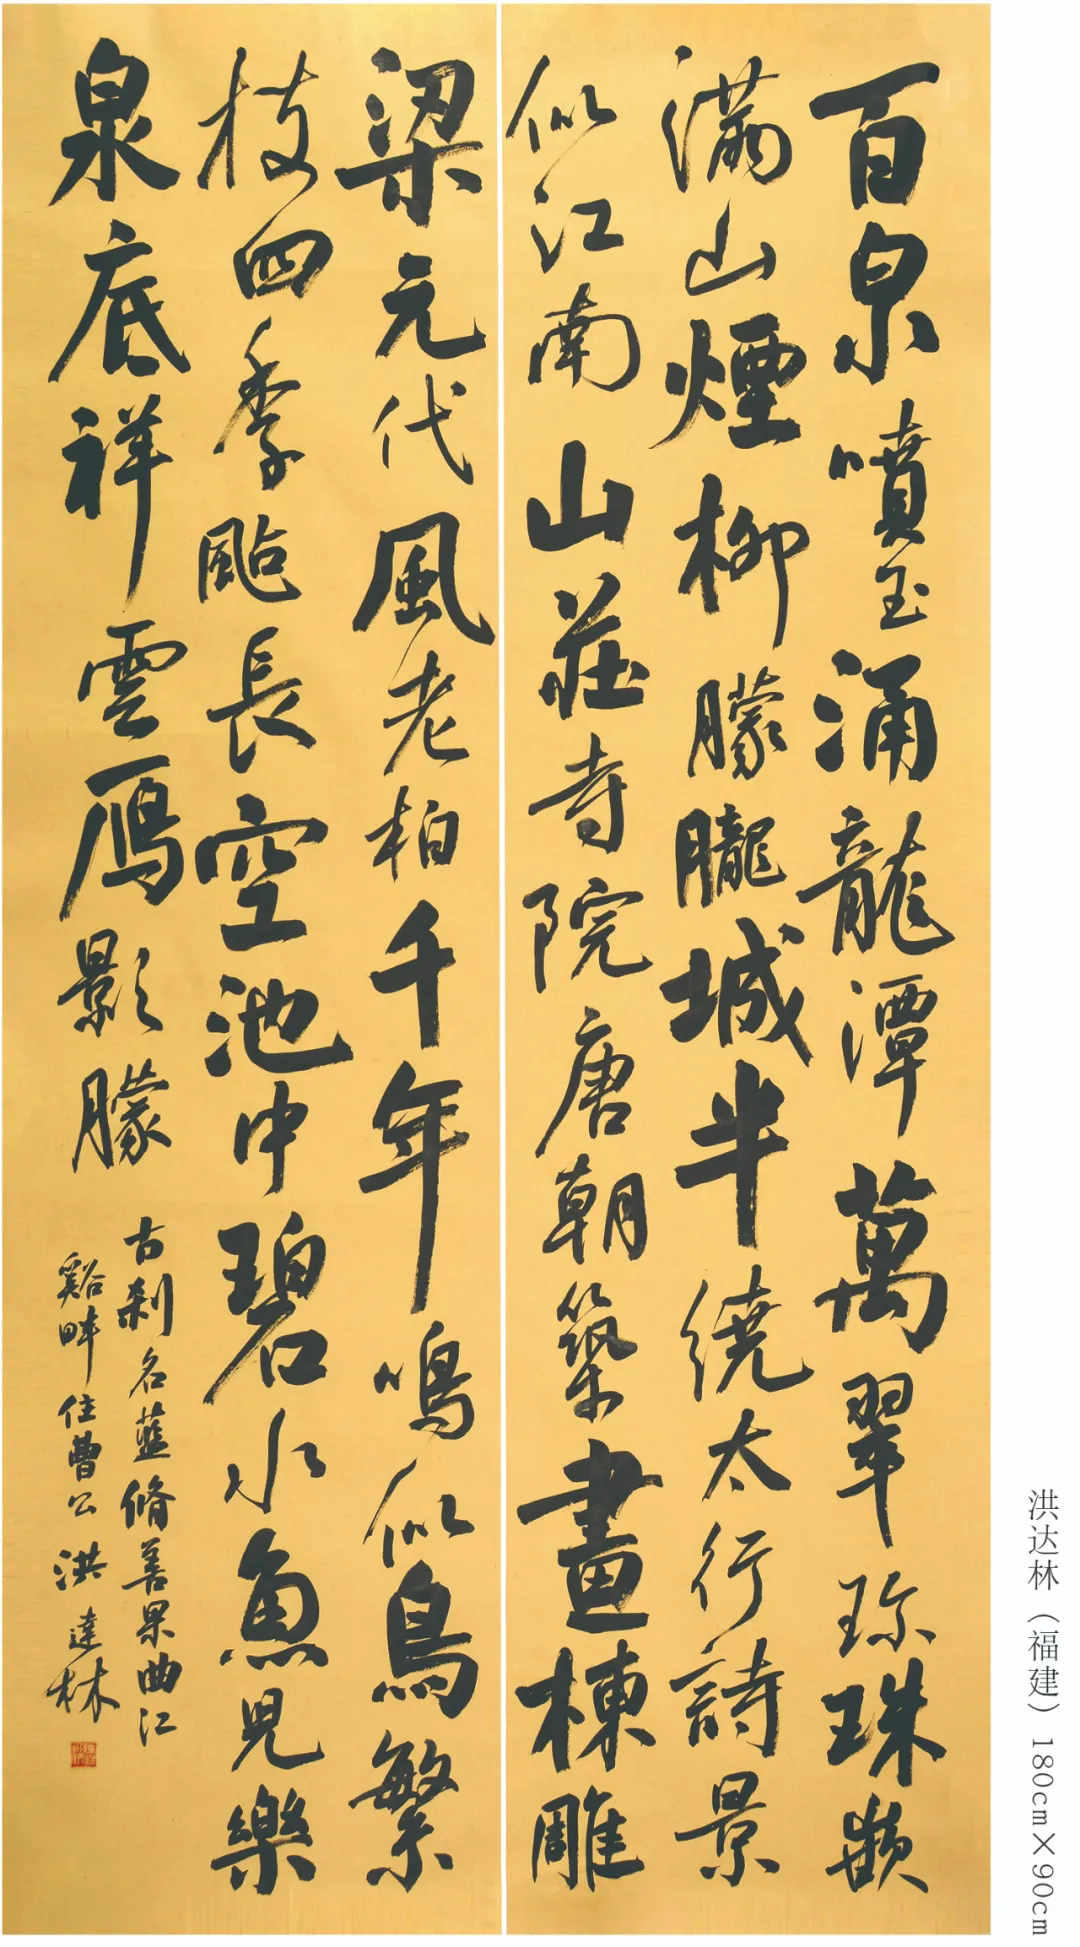 百泉噴玉涌龍潭萬翠珎珠嵌
滿山煙柳朦朧城半繞太行詩景
似江南山莊寺院唐朝築畫棟雕
梁元代風老柏千年鳴似鳥繁
枝四季颭長空池中碧水魚兒樂
泉底祥雲鴈影朦
古刹名藍脩善果曲江
谿畔住曹公洪達林
洪达林（福建）180cm×90cm